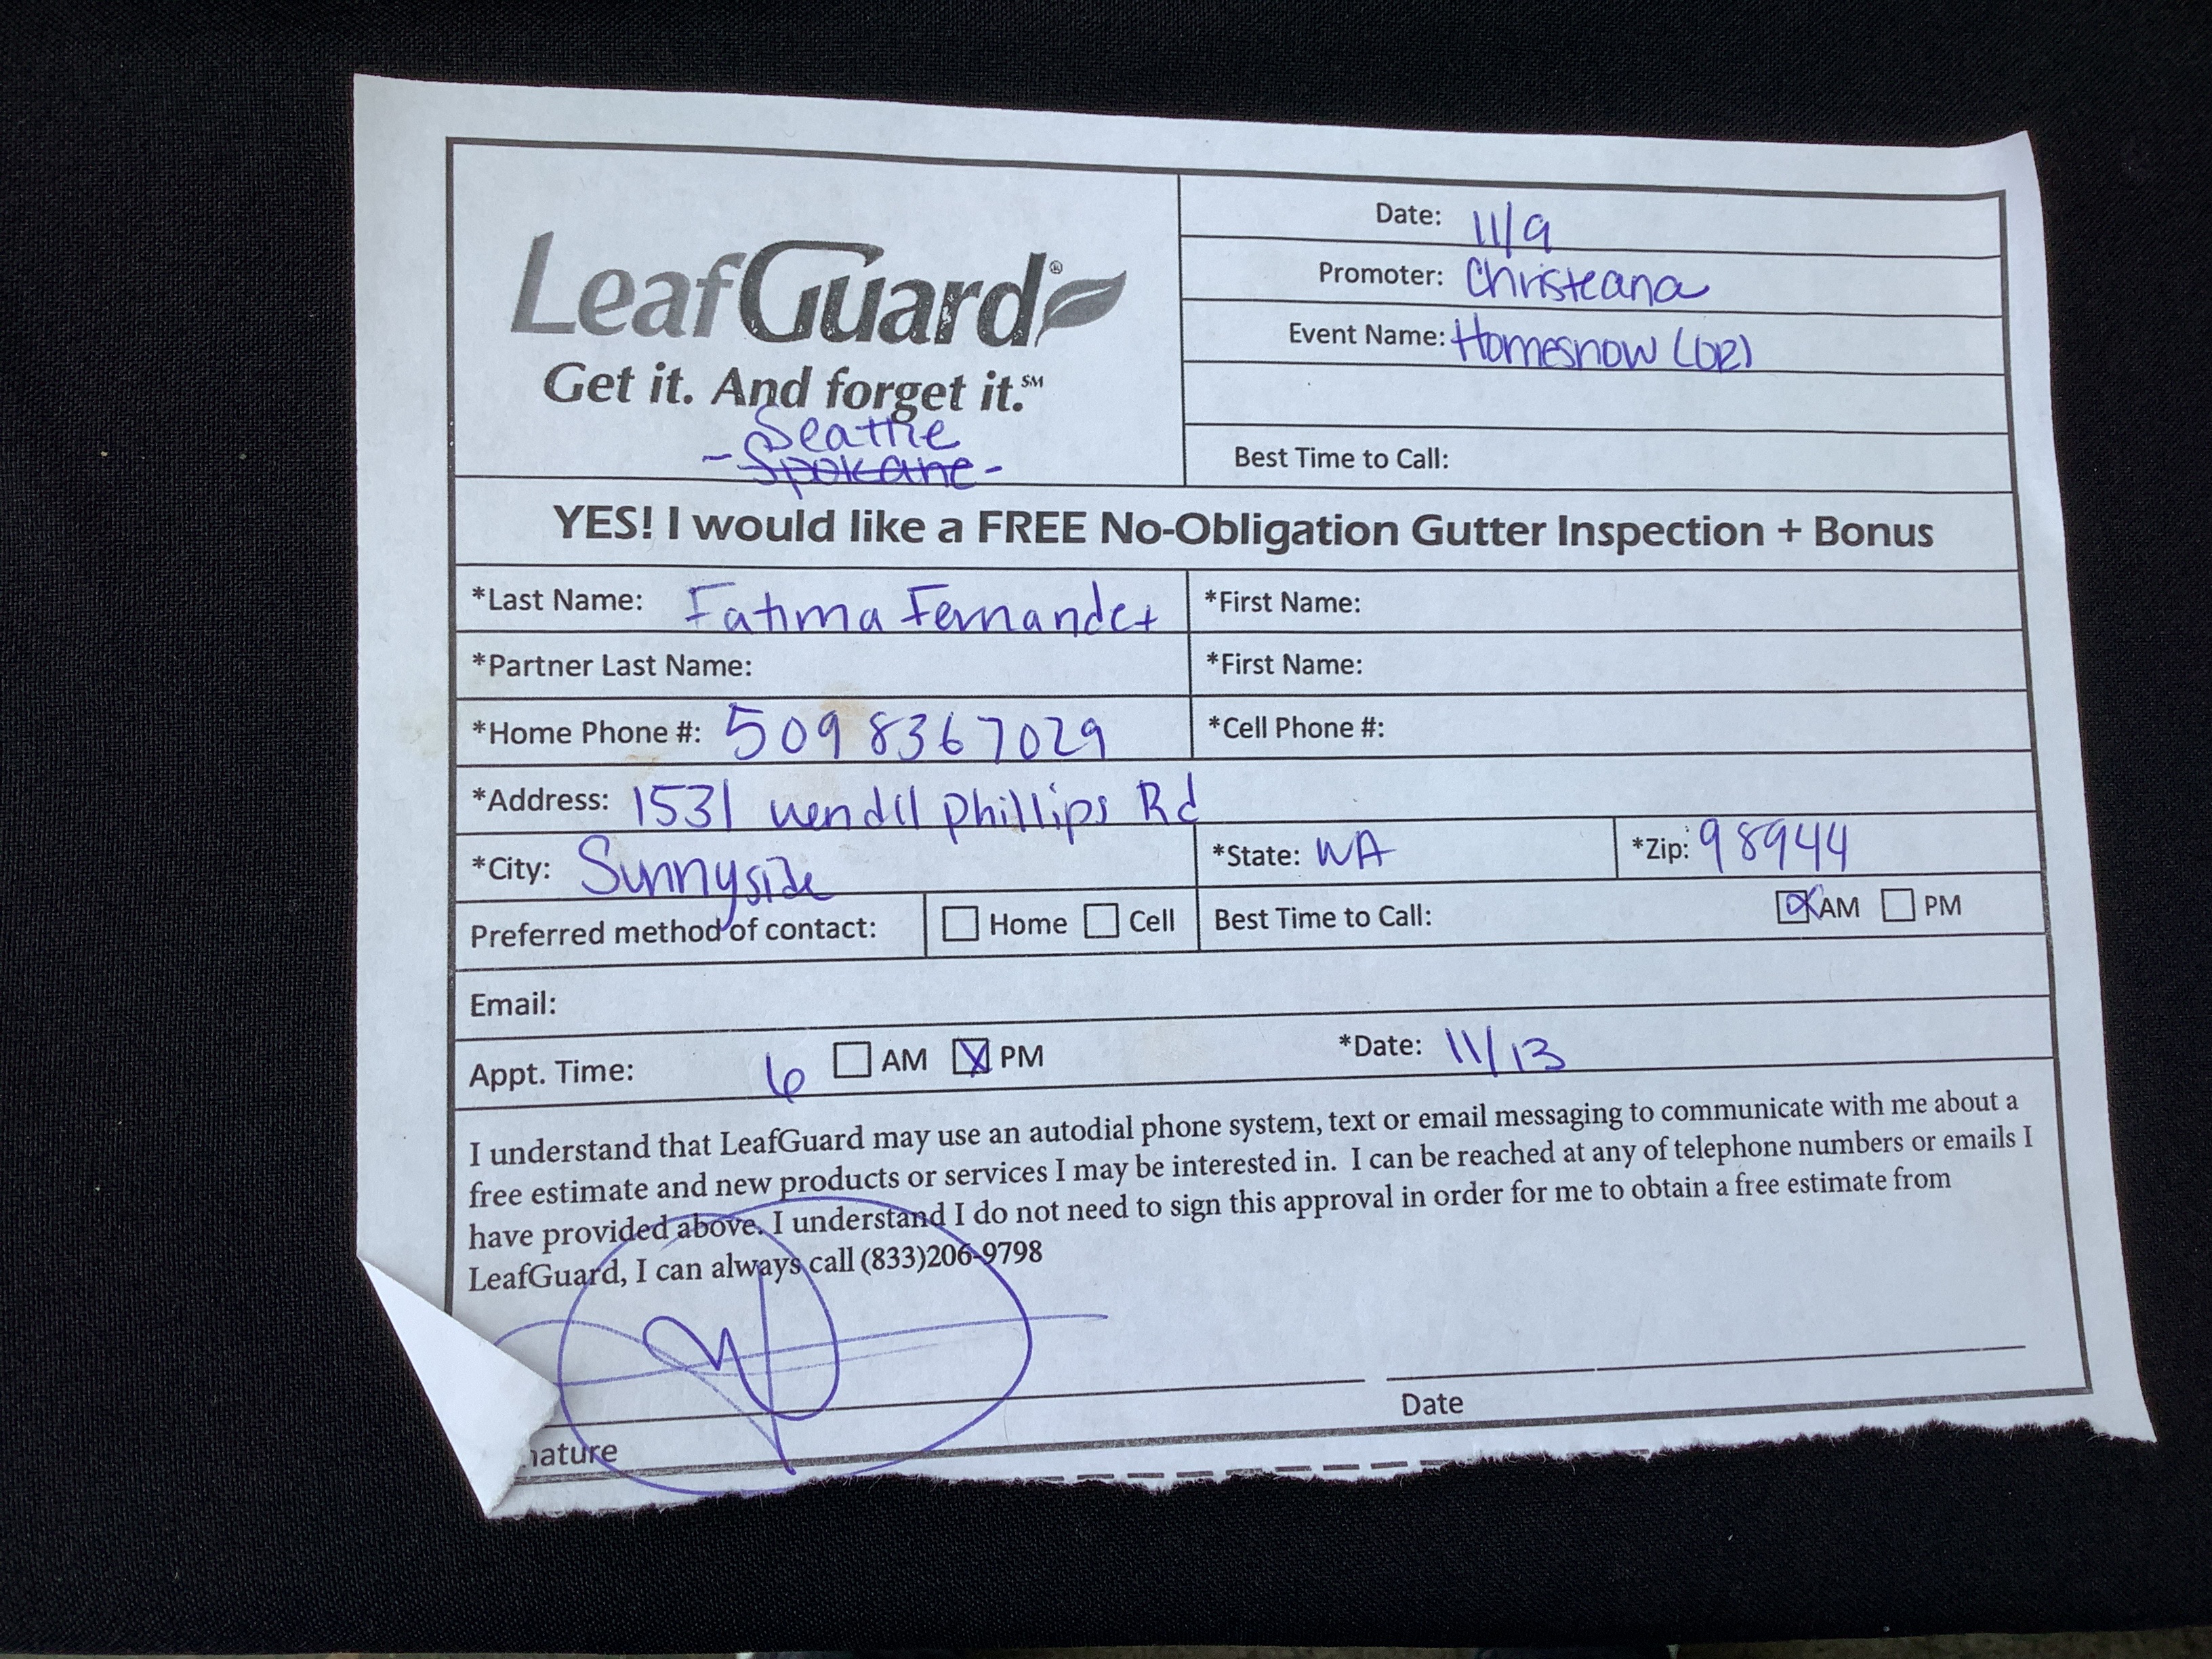 LeafGuard®
Get it. And forget it.℠
Seattle
-Spokane-
Date: 11/9
Promoter: Christeana
Event Name: Homesnow (OR)
Best Time to Call:
YES! I would like a FREE No-Obligation Gutter Inspection + Bonus
*Last Name: Fatima Fernandez
*First Name:
*Partner Last Name:
*First Name:
*Home Phone #: 509 8367029
*Cell Phone #:
*Address: 1531 Wendll Phillips Rd
*City: Sunnyside
*State: WA
*Zip: 98944
Preferred method of contact: Home Cell
Best Time to Call: AM PM
Email:
Appt. Time: 6 AM PM
*Date: 11/13
I understand that LeafGuard may use an autodial phone system, text or email messaging to communicate with me about a
free estimate and new products or services I may be interested in. I can be reached at any of telephone numbers or emails I
have provided above. I understand I do not need to sign this approval in order for me to obtain a free estimate from
LeafGuard, I can always call (833)206-9798
nature
Date